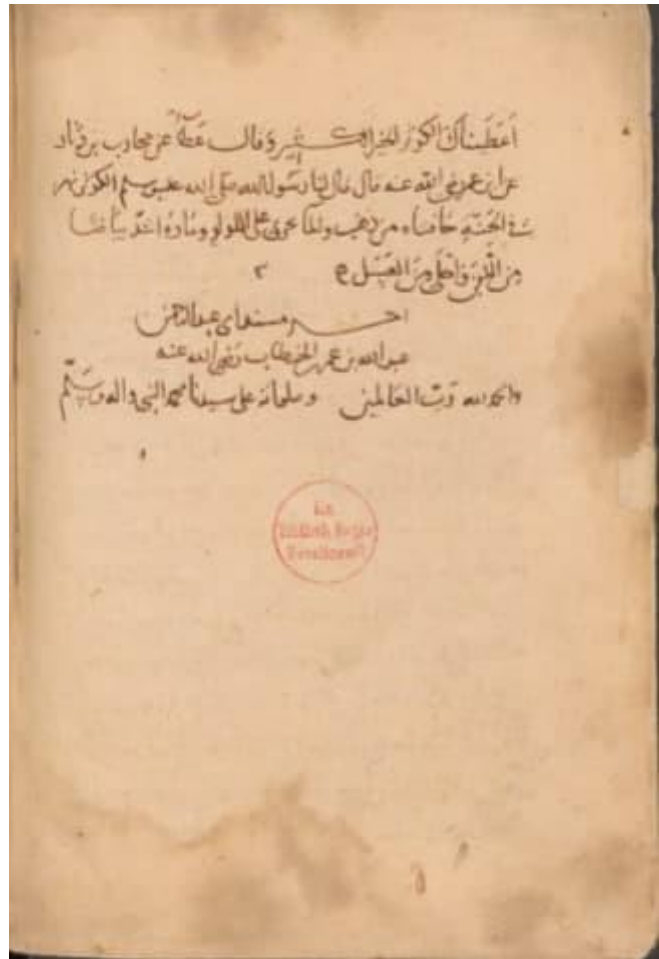 أعطيناك الكوثر الخير الكثير وقال عطاء عن محارب بن دثار
عن ابن عمر رضي الله عنه قال قال لنا رسول الله صلى الله عليه وسلم الكوثر نهر
في الجنة حافتاه من ذهب والماء يجري على اللؤلؤ وماؤه اشد بياضا
من اللبن واحلى من العسل
اخر مسند ابي عبد الرحمن
عبد الله بن عمر بن الخطاب رضي الله عنه
والحمد لله رب العالمين وصلواته على سيدنا محمد النبي واله وسلم
Ex
Biblioth. Regia
Berolinensi